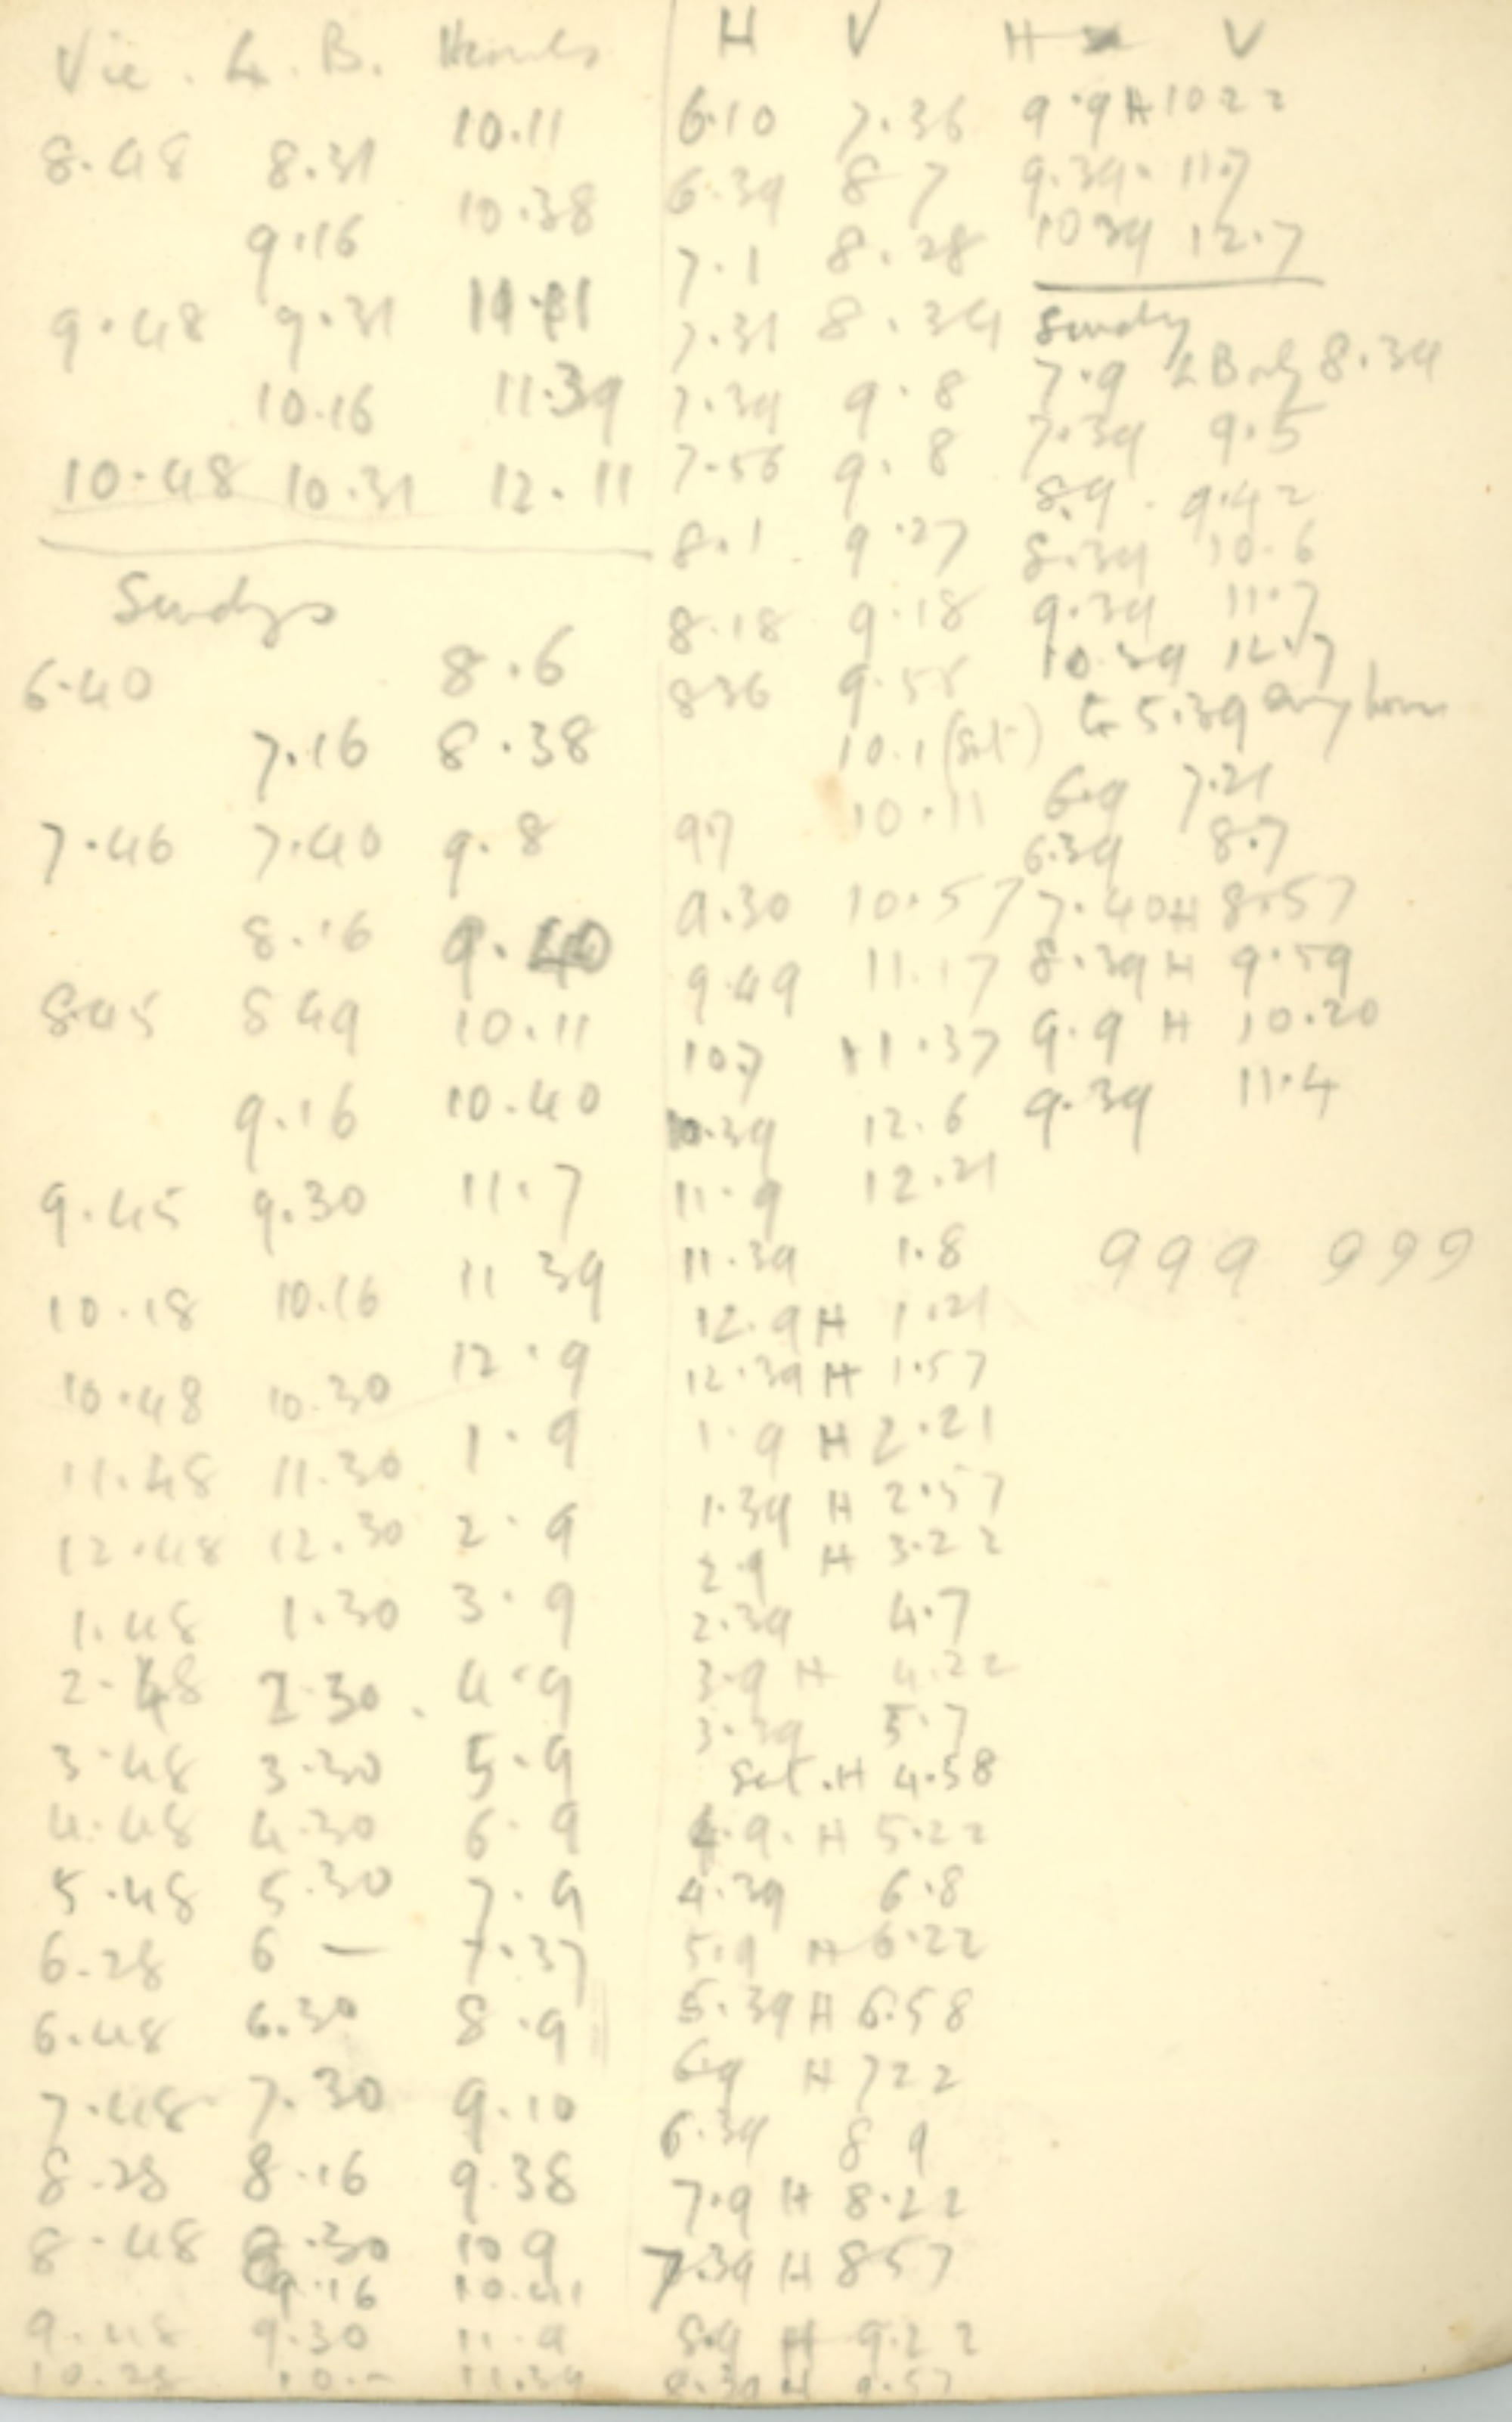 Vic. L. B. Hernes
8.48 8.31 10.11
9.16 10.38
9.48 9.31 11.11
10.16 11.39
10.48 10.31 12.11
Sundys
6.40 8.6
7.16 8.38
7.46 7.40 9.8
8.16 9.40
8.45 8 49 10.11
9.16 10.40
9.45 9.30 11.7
10.18 10.16 11 39
10.48 10.30 12.9
11.48 11.30 1.9
12.48 12.30 2.9
1.48 1.30 3.9
2.48 2.30. 4.9
3.48 3.30 5.9
4.48 4.30 6.9
5.48 5.30 7.9
6.28 6 — 7.37
6.48 6.30 8.9
7.48 7.30 9.10
8.28 8.16 9.38
8.48 8.30 10 9
9.16 10.41
9.48 9.30 11.9
10.28 10.- 11.39
H V
6.10 7.36
6.39 8 7
7.1 8.28
7.31 8.34
7.39 9.8
7.56 9.8
8.1 9.27
8.18 9.18
8 36 9.55
10.1 (Sat)
9.7 10.11
9.30 10.57
9.49 11.17
10.7 11.37
10.39 12.6
11.9 12.21
11.39 1.8
12.9 H 1.21
12.39 H 1.57
1.9 H 2.21
1.39 H 2.57
2.9 H 3.22
2.39 4.7
3.9 H 4.22
3.39 5.7
Sat. H 4.58
4.9. H 5.22
4.39 6.8
5.9 H 6.22
5.39 H 6.58
6.9 H 7 22
6.39 8 9
7.9 H 8.22
7.39 H 8 57
8.9 H 9.22
8.39 H 9.57
H V
9.9 H 10 22
9.39. 11.7
10 39 12.7
Sundy
7.9 LB only 8.34
7.39 9.5
8.9. 9.42
8.39 10.6
9.39 11.7
10.39 12.7
to 5.39 every hour
6.9 7.21
6.39 8.7
7.40 H 8.57
8.39 H 9.59
9.9 H 10.20
9.39 11.4
999 999